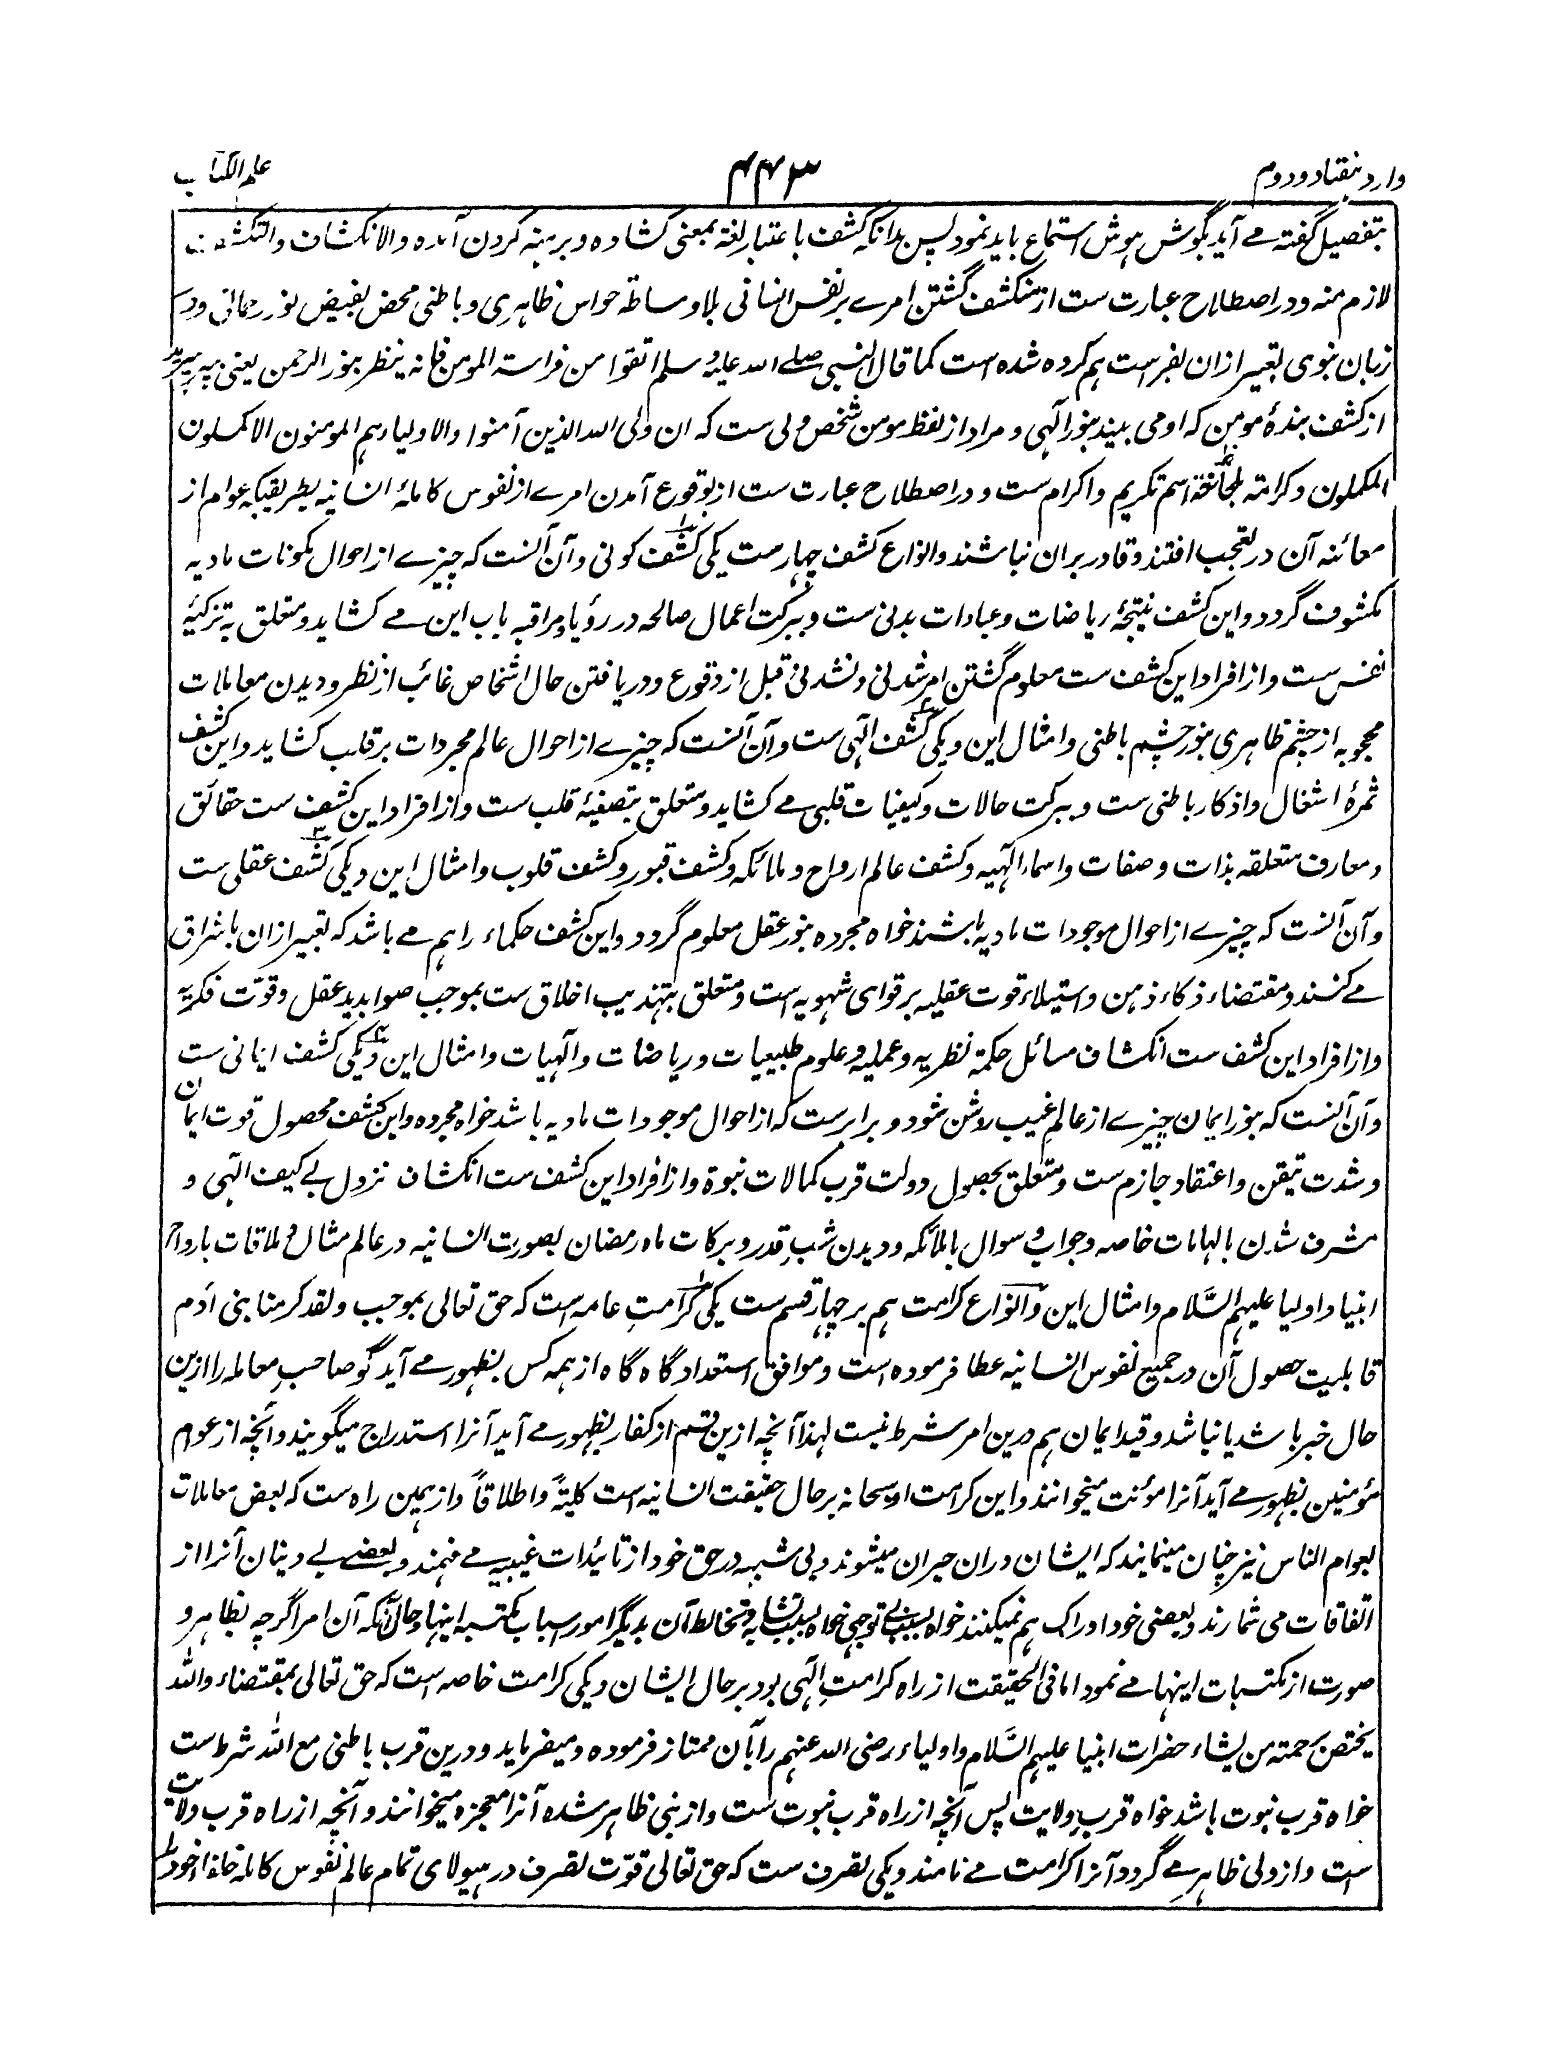 وارد ہفتاد و دوم ۴۴۳ علم الکتاب
بتفصیل گفتہ مے آید بگوش ہوش استماع باید نمود پس بدانکہ کشف باعتبار لغۃ بمعنی کشادہ و برہنہ کردن آمدہ والانکشاف والتکشف
لازم منہ و در اصطلاح عبارت ست از منکشف گشتن امرے بر نفس انسانی بلا وساطۃ حواس ظاہری و باطنی محض بفیض نور رحمانی و در
زبان نبوی تعبیر ازان بفراست ہم کردہ شدہ است کما قال النبی صلے اللہ علیہ وسلم اتقوا من فراسۃ المومن فانہ ینظر بنور الرحمن یعنی بپرہیزید
از کشف بندۂ مومن کہ او می بیند بنور آلہی و مراد از لفظ مومن شخص ولی ست کہ ان ولی اللہ الذین آمنوا والاولیاء ہم المومنون الاکملون
المکملون و کرامتہ لغۃ اسم تکریم و اکرام ست و در اصطلاح عبارت ست از بوقوع آمدن امرے از نفوس کاملۂ انسانیہ بطریقیکہ عوام از
معائنہ آن در تعجب افتند و قادر بران نباشند و انواع کشف چہارست یکی کشف کونی و آن آنست کہ چیزے از احوال مکونات مادیہ
مکشوف گردد و این کشف نتیجۂ ریاضات و عبادات بدنی ست و ببرکت اعمال صالحہ در رؤیا و مراقبہ باب این مے کشاید و متعلق بہ تزکیۂ
نفس ست و از افراد این کشف ست معلوم گشتن امر شدنی و نشدنی قبل از وقوع و دریافتن حال اشخاص غائب از نظر و دیدن معاملات
محجوبہ از چشم ظاہری بنور چشم باطنی و امثال این و یکی کشف الٓہی ست و آن آنست کہ چیزے از احوال عالم مجردات بر قلب کشاید و این کشف
ثمرۂ اشغال و اذکار باطنی ست و ببرکت حالات و کیفیات قلبی مے کشاید و متعلق بتصفیۂ قلب ست و از افراد این کشف ست حقائق
و معارف متعلقہ بذات و صفات و اسماء الٓہیہ و کشف عالم ارواح و ملائکہ و کشف قبور و کشف قلوب و امثال این و یکی کشف عقلی ست
و آن آنست کہ چیزے از احوال موجودات مادیہ باشند خواہ مجردہ بنور عقل معلوم گردد و این کشف حکماء را ہم مے باشد کہ تعبیر ازان باشراق
مے کنند و مقتضاء ذکاء ذہن و استیلاء قوت عقلیہ بر قوای شہویہ است و متعلق بتہذیب اخلاق ست بموجب صوابدید عقل و قوّت فکریہ
و از افراد این کشف ست انکشاف مسائل حکمۃ نظریہ و عملیہ و علوم طبیعیات و ریاضات و الٓہیات و امثال این و یکی کشف ایمانی ست
و آن آنست کہ بنور ایمان چیزے از عالم غیب روشن شود و برابرست کہ از احوال موجودات مادیہ باشد خواہ مجردہ و این کشف محصول قوت ایمان
و شدت تیقن و اعتقاد جازم ست و متعلق بحصول دولت قرب کمالات نبوۃ و از افراد این کشف ست انکشاف نزول بے کیف الٓہی و
مشرف شدن بالہامات خاصہ و جواب و سوال با ملائکہ و دیدن شبِ قدر و برکات ماہ رمضان بصورت انسانیہ در عالم مثال و ملاقات بارواح
انبیا و اولیا علیہم السَّلام و امثال این و انواع کرامت ہم بر چہار قسم ست یکی کرامتِ عامہ است کہ حق تعالی بموجب ولقد کرمنا بنی آدم
قابلیت حصول آن در جمیع نفوس انسانیہ عطا فرمودہ است و موافق استعداد گاہ گاہ از ہمہ کس بظہور مے آید گو صاحبِ معاملہ را ازین
حال خبر باشد یا نباشد و قید ایمان ہم درین امر شرط نیست لہذا آنچہ ازین قسم از کفار بظہور مے آید آنرا استدراج میگویند و آنچہ از عوام
مؤمنین بظہور مے آید آنرا مؤنت میخوانند و این کرامت او سبحانہ بر حال حقیقت انسانیہ است کلیتہً و اطلاقاً و از ہمین راہ ست کہ بعض معاملات
بعوام الناس نیز چنان مینمایند کہ ایشان دران حیران میشوند و بی شبہہ در حق خود از تائیدات غیبیہ مے فہمند و بعضے بے دینان آنرا از
اتفاقات می شمارند و بعضی خود ادراک ہم نمیکنند خواہ بسبب بے توجہی خواہ بسبب تشابہ و تخالط آن بدیگر امور اسباب مکتسبہ اینہا و حال آنکہ آن امر اگرچہ بظاہر و
صورت از مکتسبات اینہا مے نمود اما فی الحقیقت از راہ کرامتِ الٓہی بود بر حال ایشان و یکی کرامت خاصہ است کہ حق تعالی بمقتضاء واللّٰہ
یختص برحمتہ من یشاء حضرات انبیا علیہم السَّلام و اولیاء رضی اللہ عنہم را بآن ممتاز فرمودہ و میفرماید و درین قرب باطنی مع اللّٰہ شرط ست
خواہ قرب نبوت باشد خواہ قربِ ولایت پس آنچہ از راہ قرب نبوت ست و از نبی ظاہر شدہ آنرا معجزہ میخوانند و آنچہ از راہ قرب ولایت
است و از ولی ظاہر مے گردد آنرا کرامت مے نامند و یکی تصرف ست کہ حق تعالی قوّت تصرف در ہیولای تمام عالم نفوس کاملہ خلفاء خود را